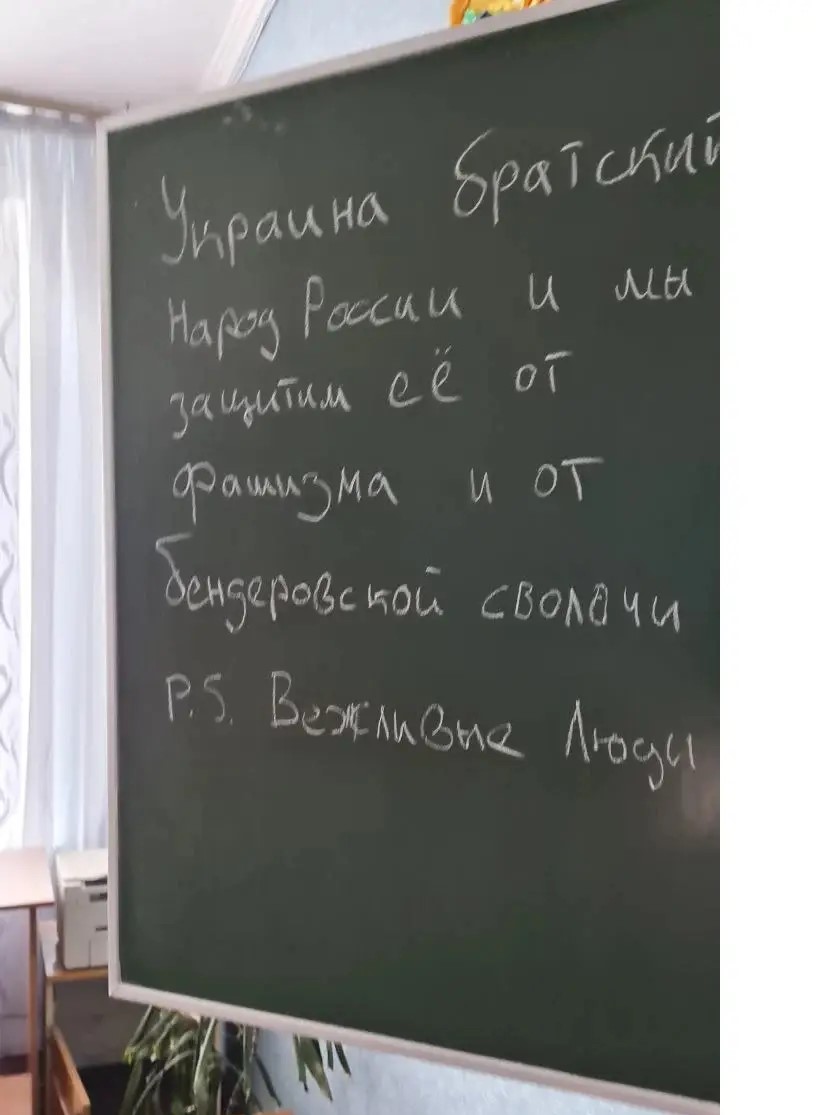 Украина братский
народ России и мы
защитим её от
фашизма и от
бендеровской сволочи
P.S. Вежливые Люди